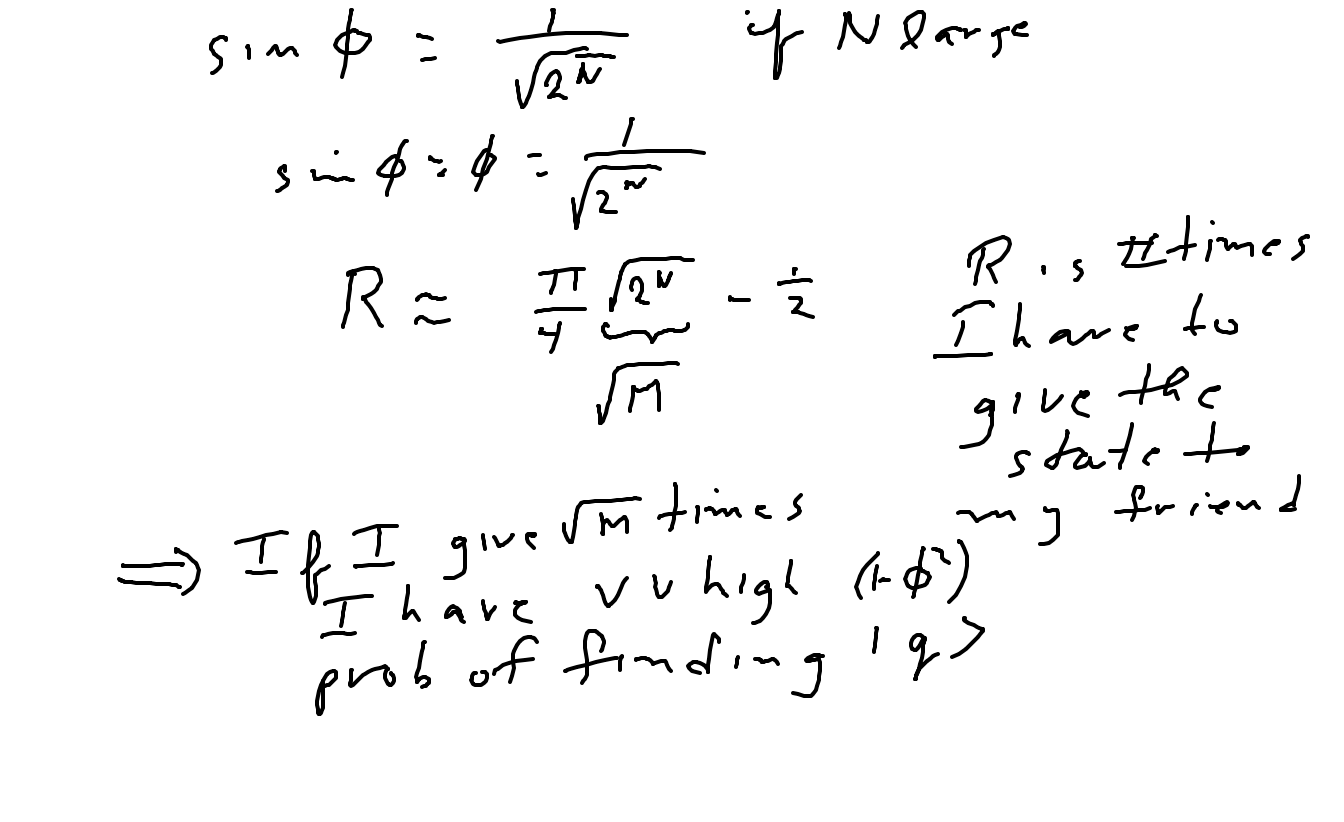 sin ϕ = 1/√(2^N) if N large
sin ϕ ≈ ϕ = 1/√(2^N)
R ≈ π/4 √(2^N) - 1/2
√M
R is # times
I have to
give the
state to
my friend
⇒ If I give √M times
I have v v high (1-ϕ²)
prob of finding |q>